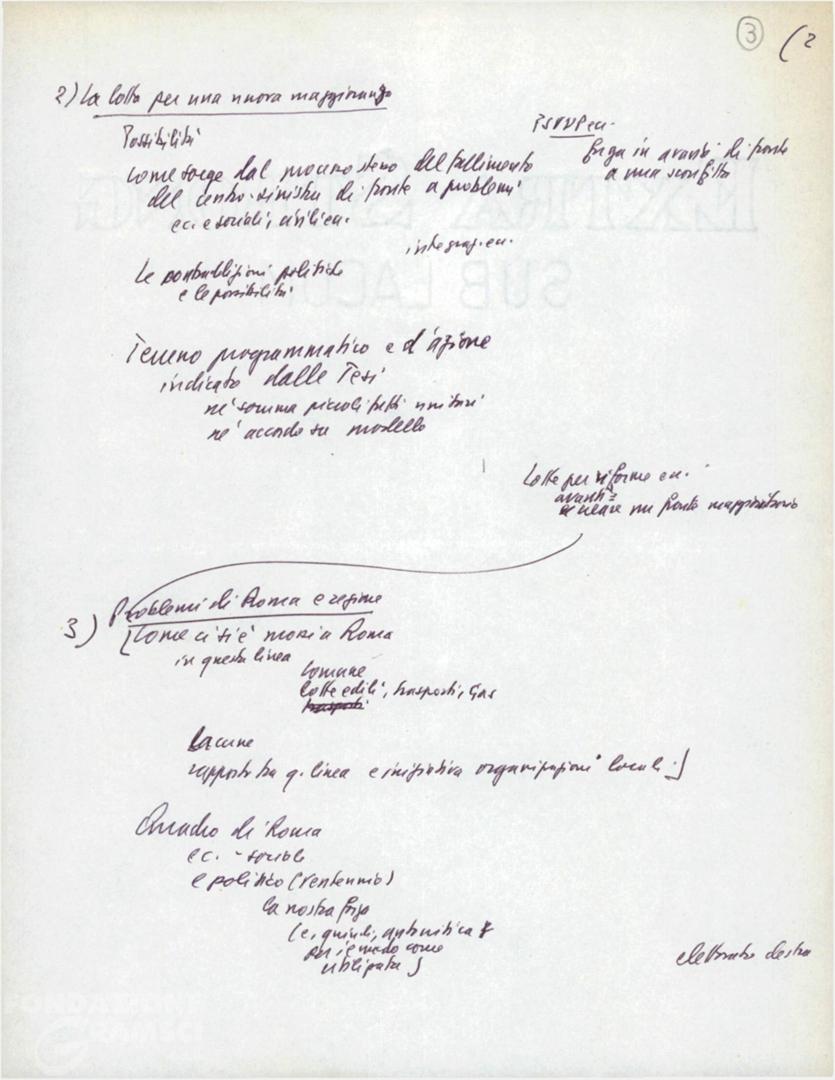 3 (2
2) La lotta per una nuova maggioranza
Possibilità
PSIUP ecc.
fuga in avanti di fronte
a una sconfitta
come sorge dal processo stesso del fallimento
del centro-sinistra di fronte a problemi
ec. e sociali, civili ecc.
integraz. ecc.
Le contraddizioni politiche
e le possibilità
Terreno programmatico e d'azione
indicato dalle Tesi
né somma piccoli fatti unitari
né accordo su modello
Lotte per riforme ecc.
avanti =
creare un fronte maggioritario
3) Problemi di Roma e regime
[Come ci si è mossi a Roma
in questa linea
Comune
lotte edili, trasporti, Gas
trasporti
Lacune
rapporto tra q. linea e iniziativa organizzazioni locali.]
Quadro di Roma
ec. - sociale
e politico (ventennio)
la nostra forza
(e, quindi, autocritica
per il modo come
utilizzata)
elettorato destra
FONDAZIONE
GRAMSCI